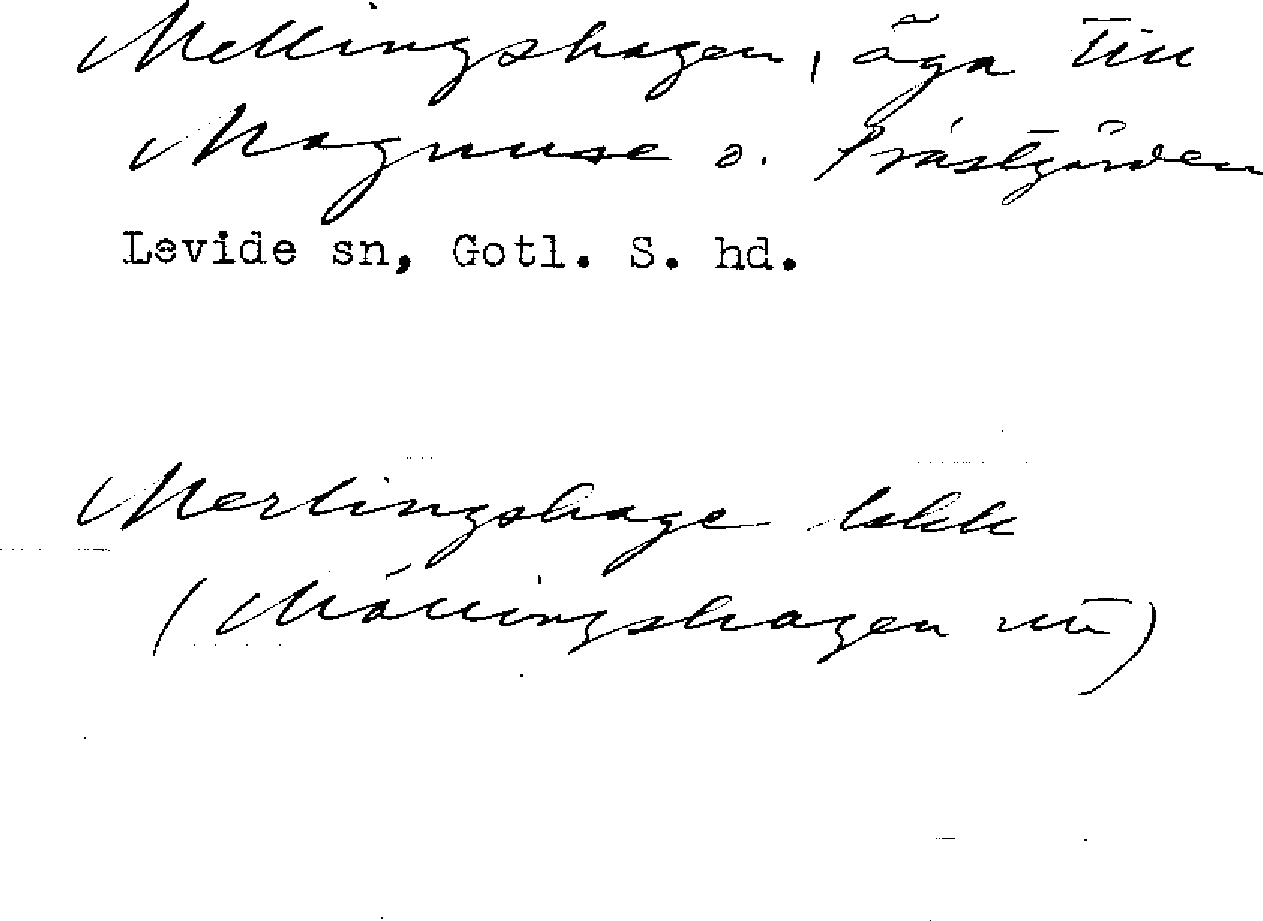 Mellingshagen, äga till
Magnuse o. Prästgården
Levide sn, Gotl. S. hd.
Merlingshage
(Mällingshagen nu)